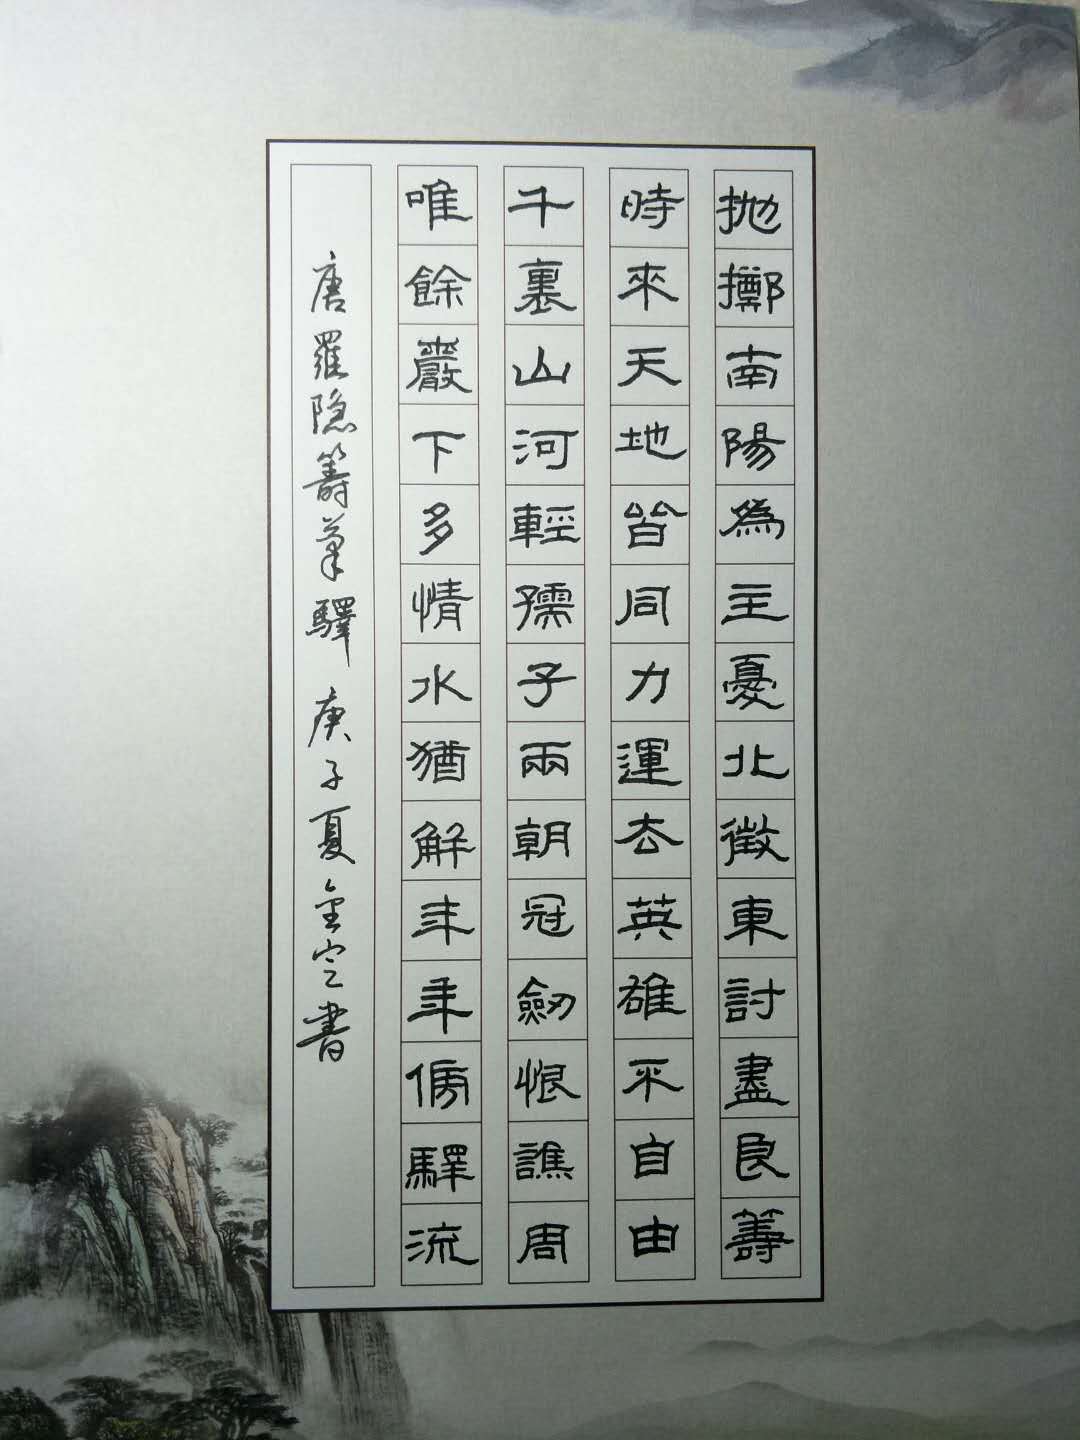 抛擲南陽為主憂北徵東討盡良籌
時來天地皆同力運去英雄不自由
千裏山河輕孺子兩朝冠劒恨譙周
唯餘巖下多情水猶解年年傍驛流
唐羅隐籌筆驛 庚子夏金定書